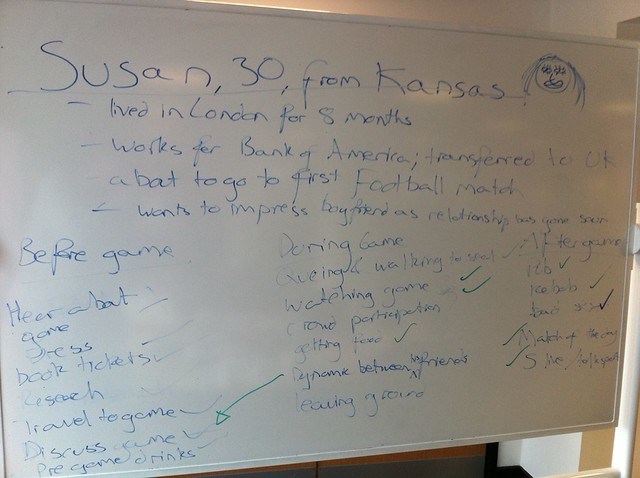 Susan, 30, from Kansas
- lived in London for 8 months
- works for Bank of America; transferred to UK
about to go to first Football match
- wants to impress boyfriend as relationship has gone
Before game
Hear about
game
Dress
book tickets
Research
Travel to game
Discuss game
Pre game drinks
During Game
Queing & walking to
watching game
crowd participation
getting food
Dynamic between friends
leaving ground
After game
kebab
Match of the day
5 live